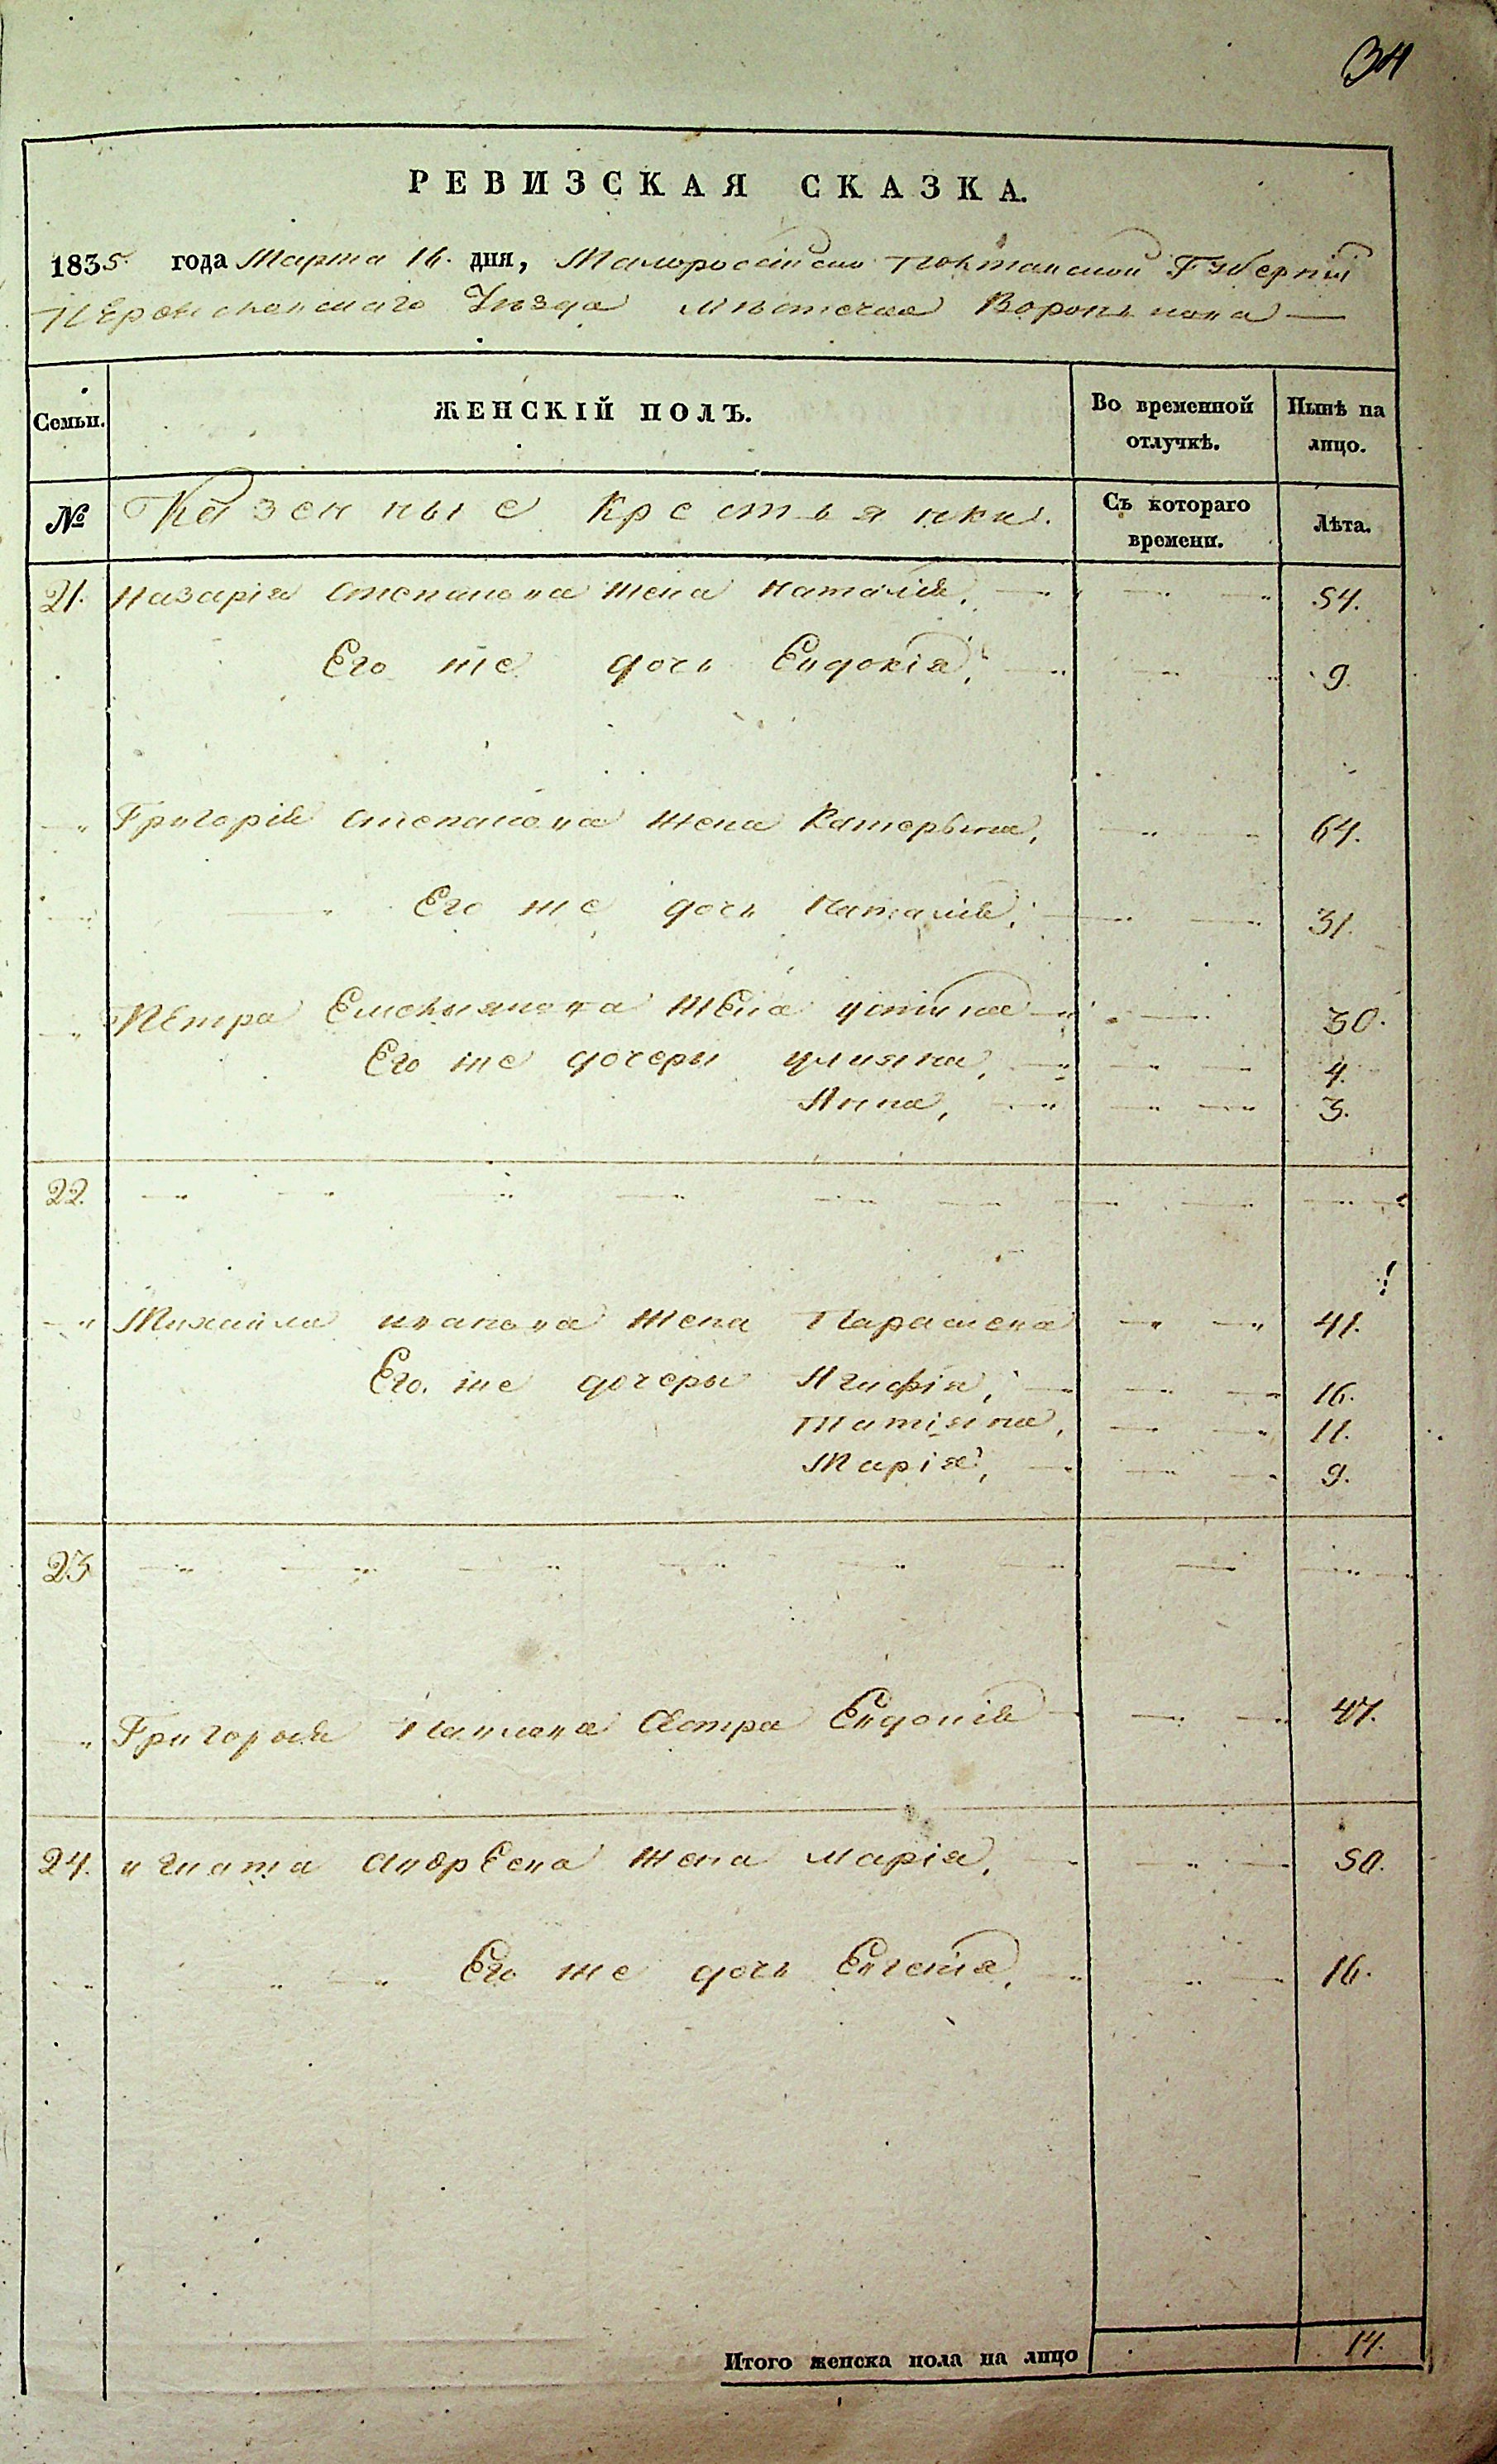 34
РЕВИЗСКАЯ СКАЗКА.
1835. года Марта 16. дня, Малоросcійской Полтавской Губерніи
Уезда Местечка Воронькова —
Семьи. ЖЕНСКІЙ ПОЛЪ. Во временной отлучкѣ. Нынѣ на лицо.
№ Казенные Крестьянки. Съ котораго времени. Лѣта.
21. Назарія Степанова жена Наталія, 54.
Его же дочь Евдокія, 9.
Григорія Степанова жена Катерына, 64.
Его же дочь Наталія, 31.
Петра Емельянова жена Устина 30.
Его же дочеры Улияна, 4.
Анна, 3.
22.
Михайла Иванова жена Параскева 41.
Его же дочеры Агафія, 16.
Татіяна, 11.
Марія, 9.
23
Григорыя Павлова Сестра Евдокія 47.
24. Игната Андреева жена Марія, 50.
Его же дочь Евгенія, 16.
Итого женска пола на лицо 14.